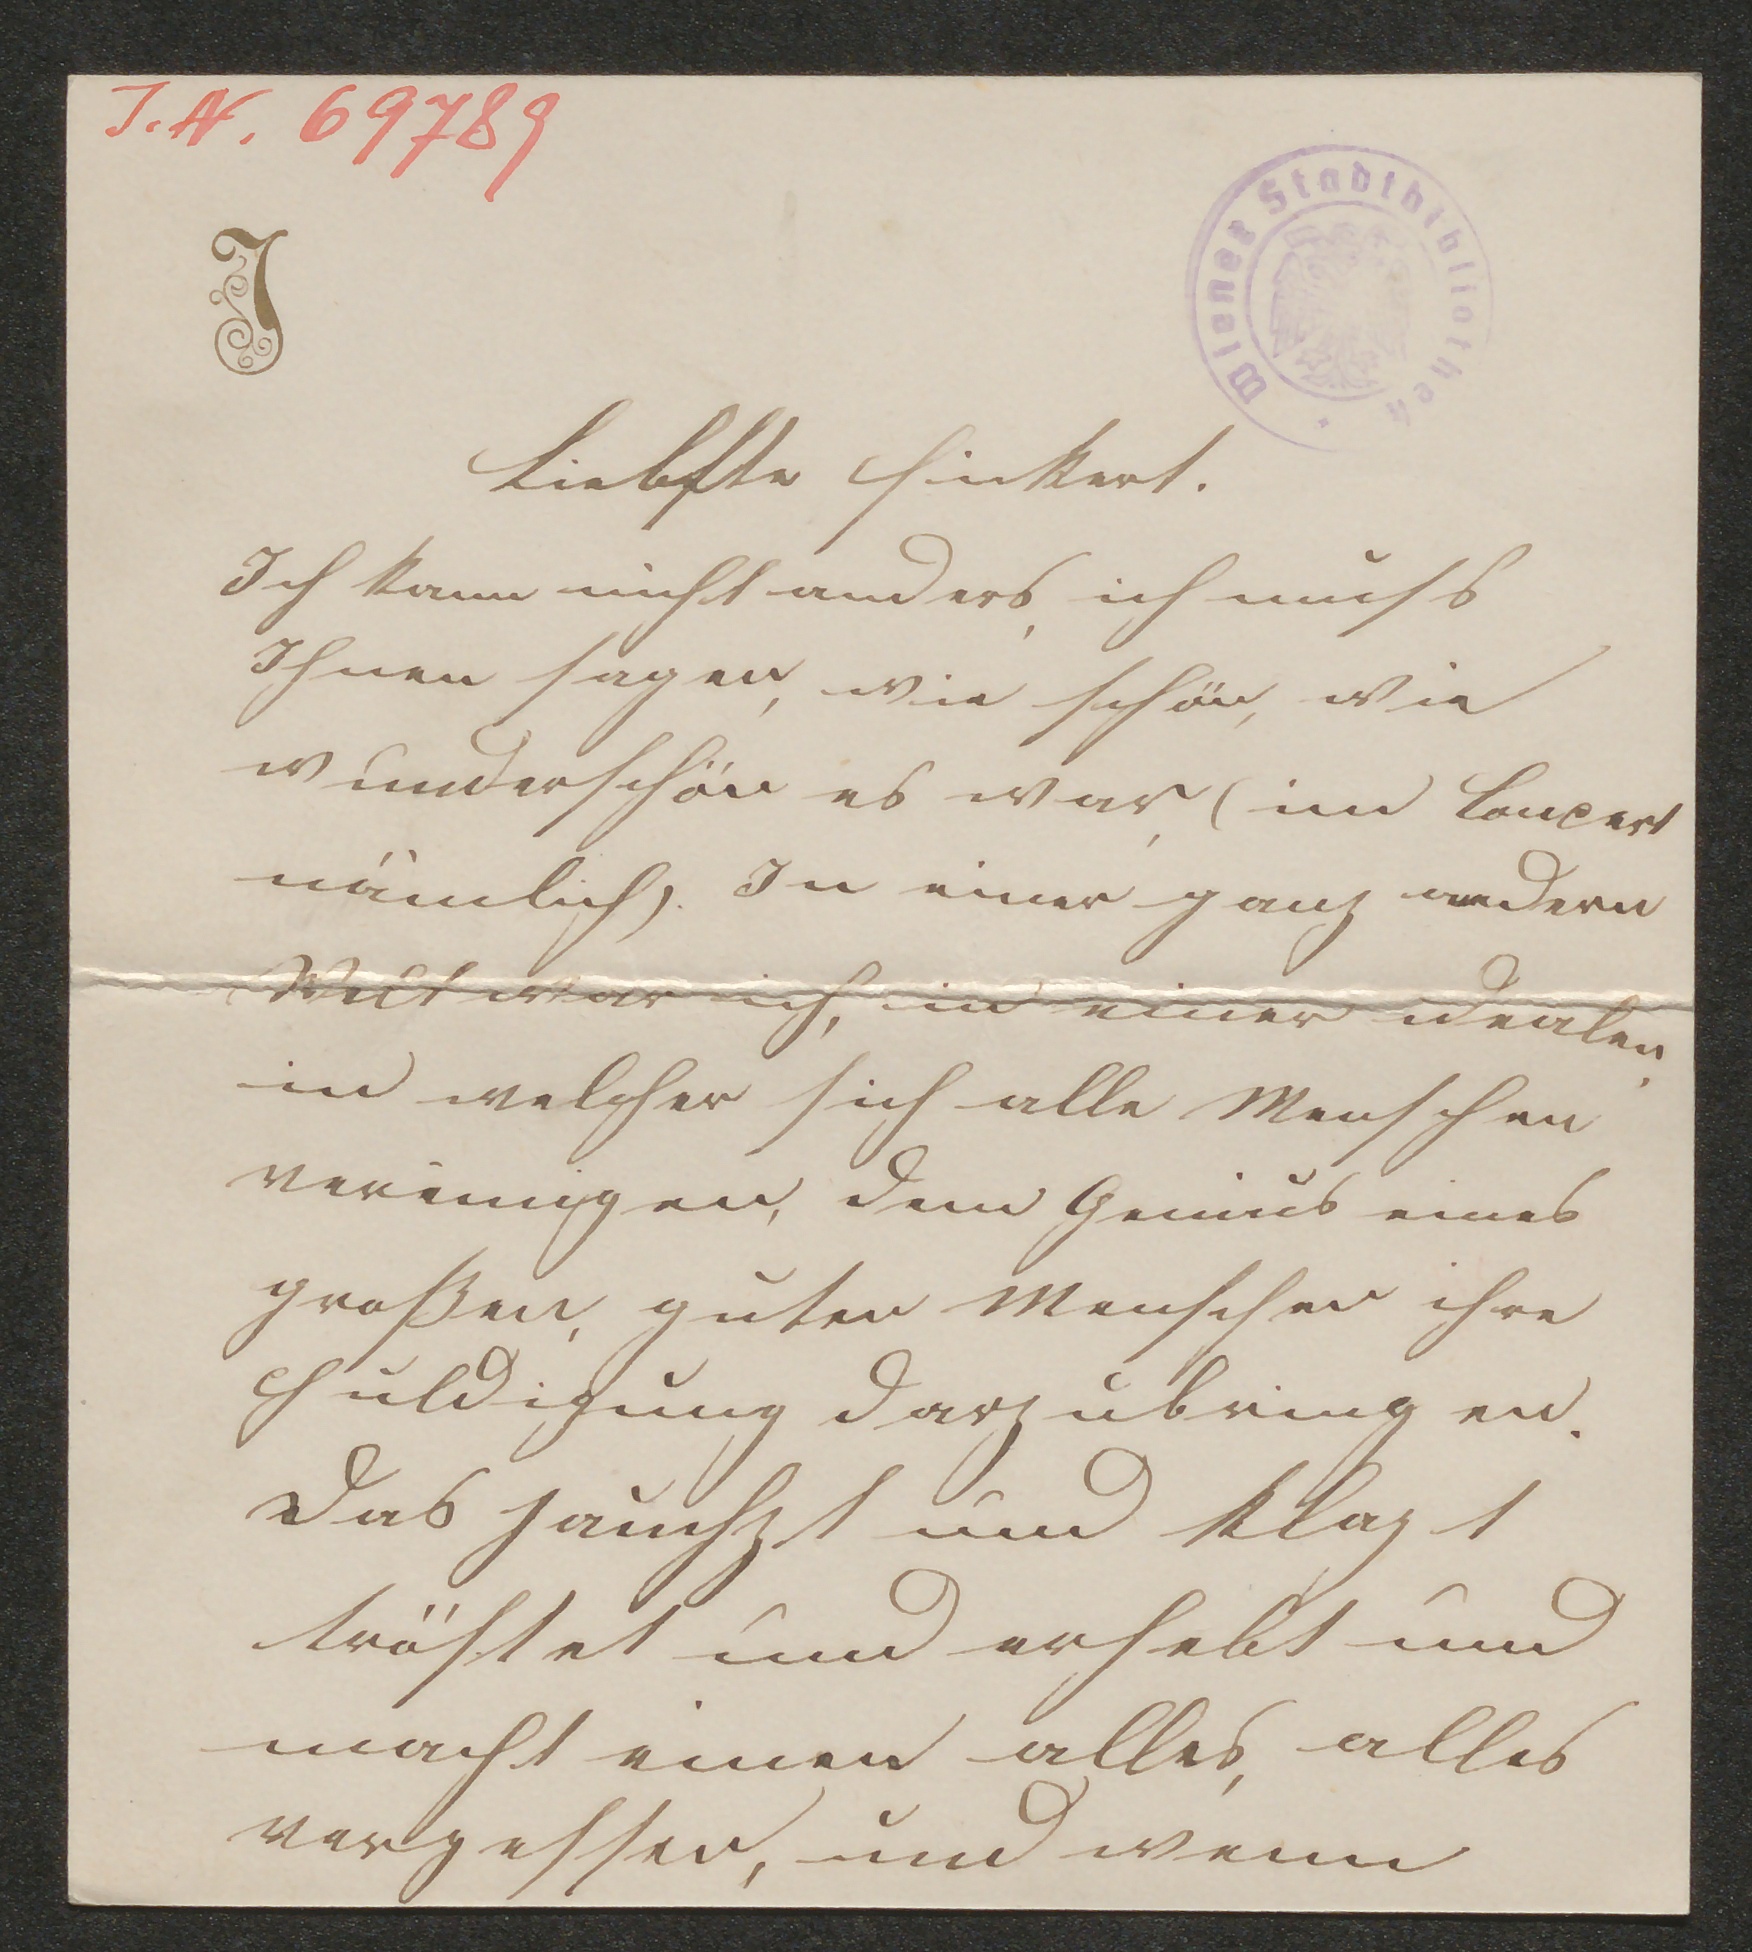 J. N. 69789
Wiener Stadtbibliothek
J
Liebste Hinkert.
Ich kann nicht anders, ich muss
Ihnen sagen, wie schön, wie
wunderschön es war, (im Concert
nämlich). In einer ganz andern
Welt war ich, in einer idealen,
in welcher sich alle Menschen
vereinigen, dem Genius eines
großen, guten Menschen ihre
Huldigung darzubringen.
Das jauchzt und klagt
tröstet und erhebt und
macht einen alles, alles
vergessen, und wenn